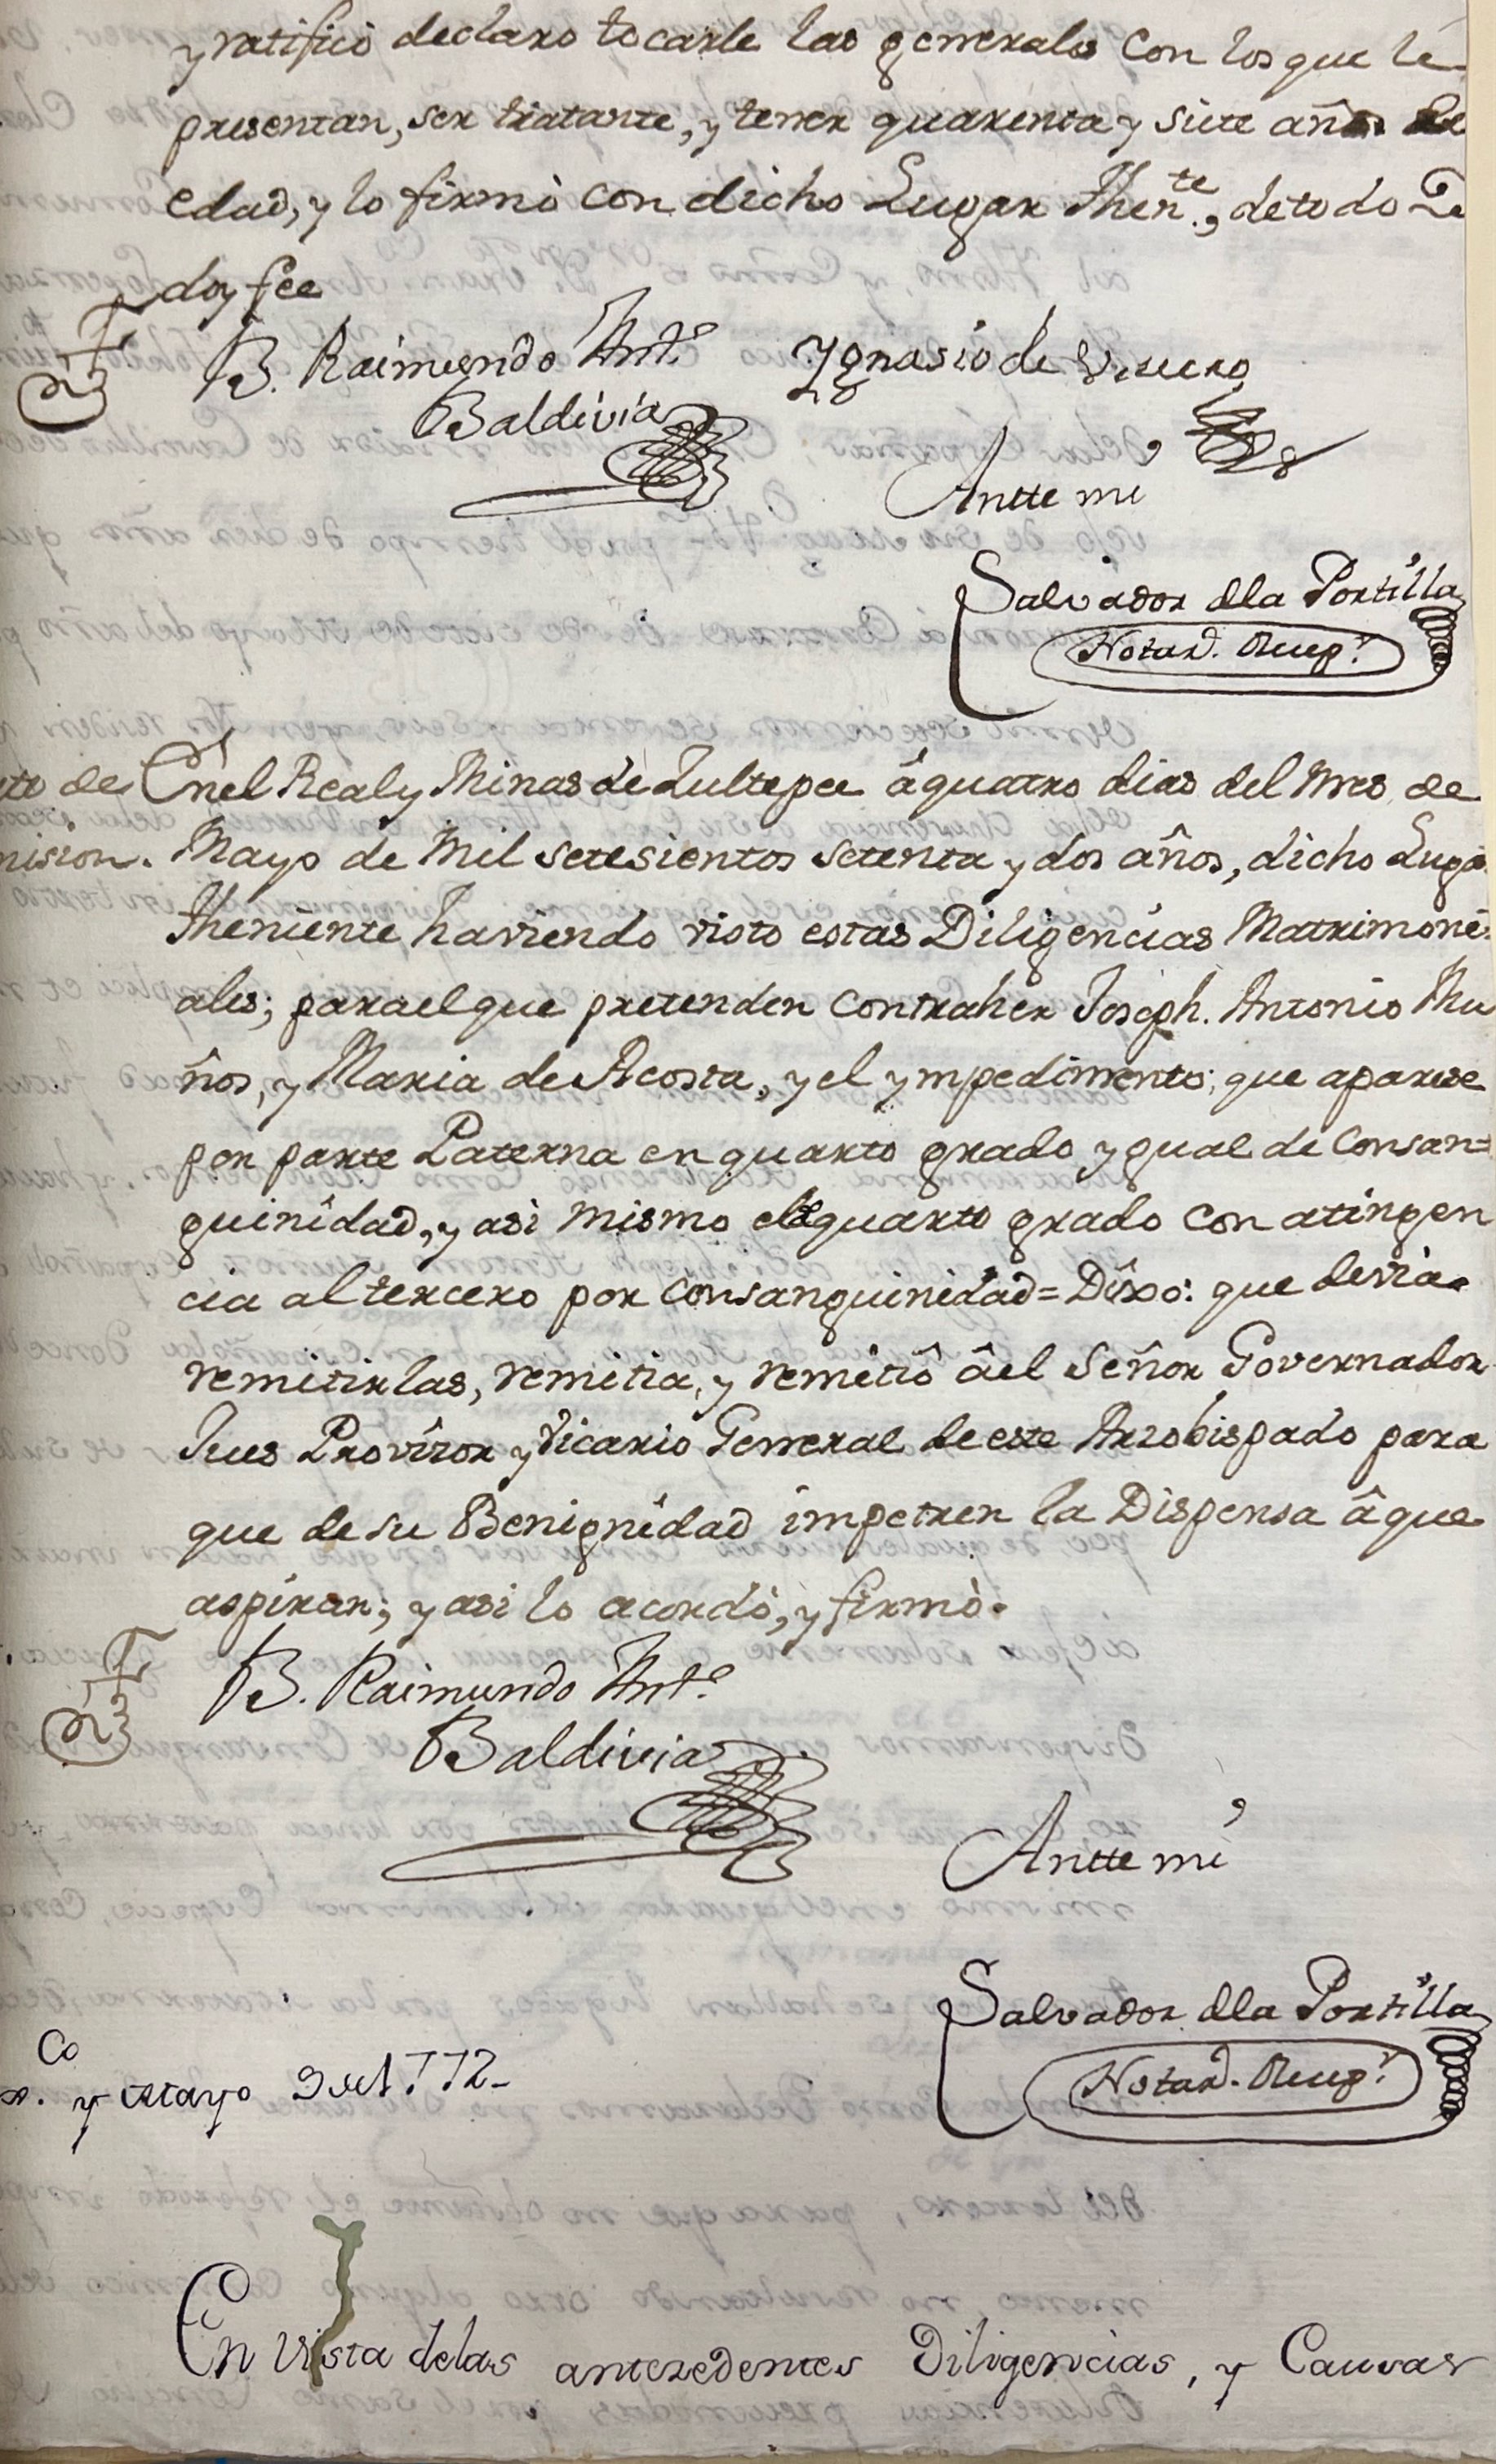 y ratificó declaro tocarle las generales con los que le
presentan, ser tratante, y tener quarenta y siete años de
edad, y lo firmò con dicho Lugar Then.te, de todo
doy fee
B. Raimundo Ant.o Ygnasio de
Baldivia
Antte mi
Salvador dla Portilla
Notar.o Recep.r
En el Real y Minas de Zultepec â quatro dias del Mes de
Mayo de Mil setesientos setenta y dos años, dicho Lugar
theniente haviendo visto estas Diligencias Matrimoni-
ales; para el que pretenden contraher Joseph. Antonio Mu
ños, y Maria de Acosta, y el ympedimento; que aparese
por parte Paterna en quarto grado ygual de Consan=
guinidad, y asi mismo el quarto grado con atingen
cia al tercero por consanguinidad = Dixo: que devia
remitirlas, remitia, y remitiô âel Señor Governador
Jues Provisor y Vicario General de este Arzobispado para
que de su Benignidad impetren la Dispensa â que
aspiran; y asi lo acordò, y firmò.
B. Raimundo Ant.o
Baldivia
Antte mi
Salvador dla Portilla
Notar.o Recep.r
y Mayo 9 de 1772-
En vista delas antezedentes Diligencias, y Causas